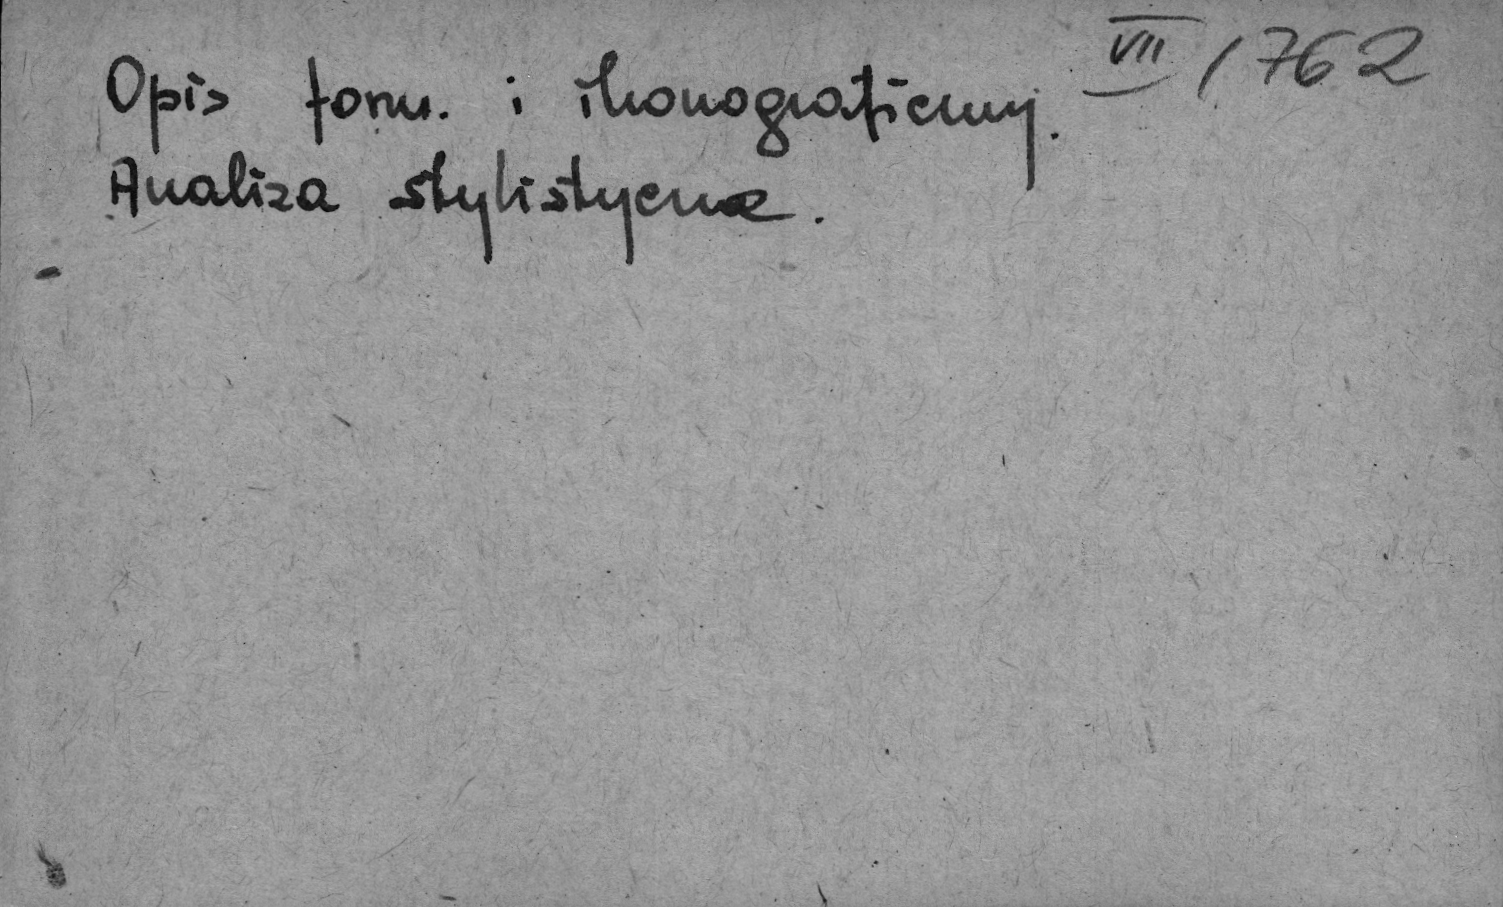 VII / 762
Opis form. i ikonograficzny.
Analiza stylistyczna.